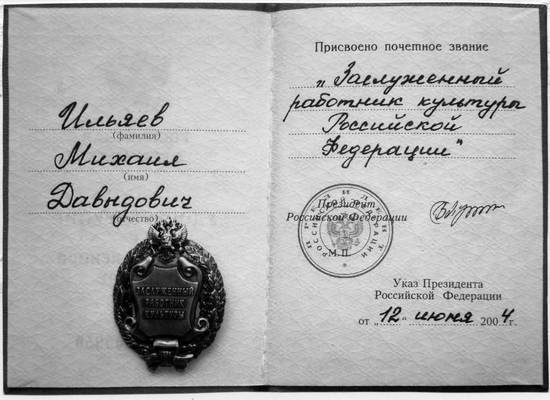 Ильяев
(фамилия)
Михаил
(имя)
Давыдович
(отчество)
ЗАСЛУЖЕННЫЙ
РАБОТНИК
КУЛЬТУРЫ
Присвоено почетное звание
„Заслуженный
работник культуры
Российской
Федерации"
Президент
Российской Федерации
М.П.
Указ Президента
Российской Федерации
от „12" июня 2004 г.